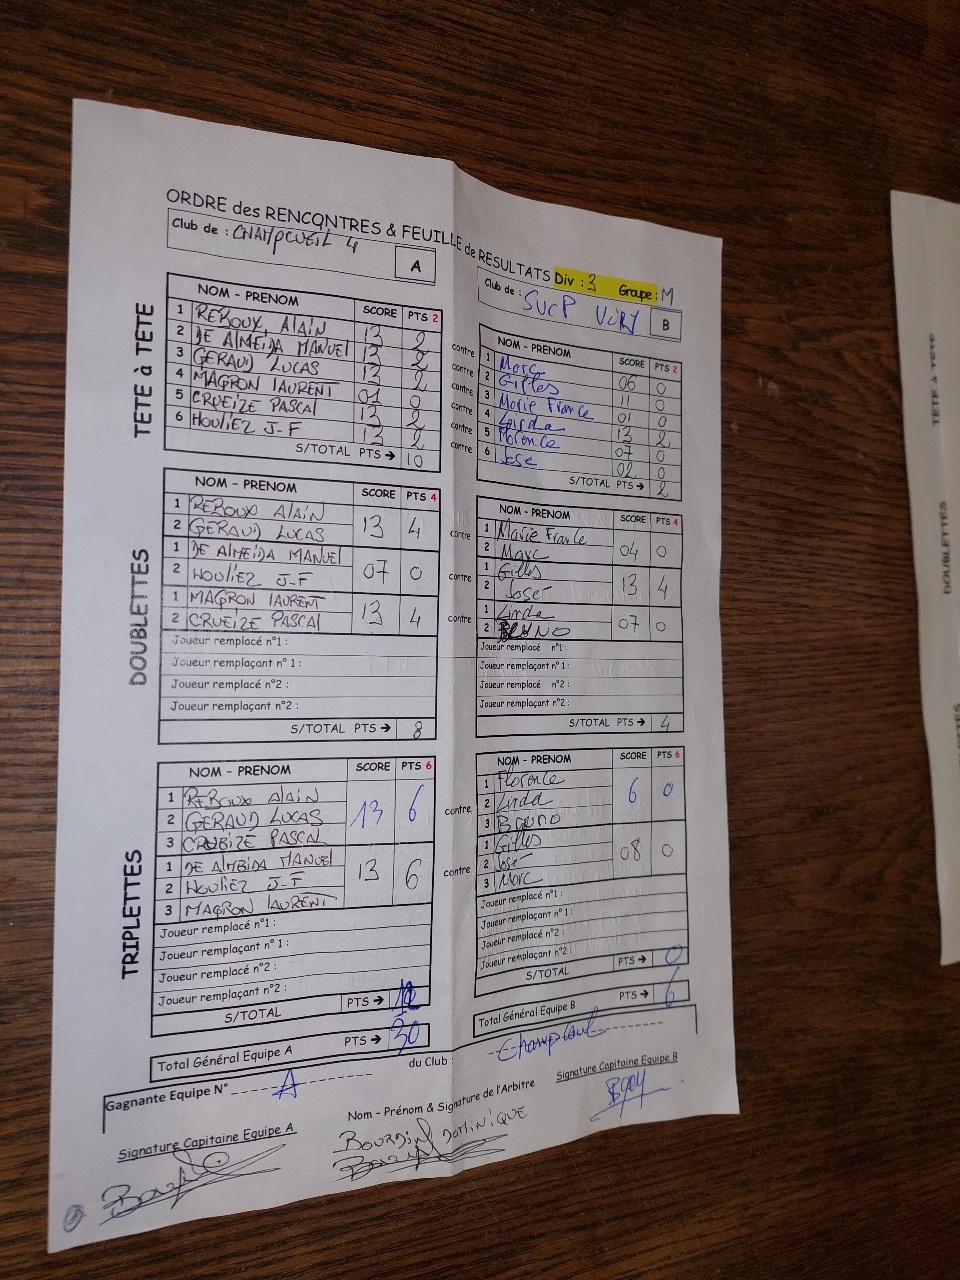 ORDRE des RENCONTRES & FEUILLE de RESULTATS Div : 3 Groupe : M
Club de : CHAMPCUEIL 4
A
TETE à TETE
NOM - PRENOM SCORE PTS 2
1 REBOUX, Alain 13 2
2 DE AlMEIDA MANUEl 13 2
3 GERAUD LUCAS 13 2
4 MAGRON lAURENT 01 0
5 CRUEIZE PASCAl 13 2
6 HOUliEZ J-F 13 2
S/TOTAL PTS → 10
contre
contre
contre
contre
contre
contre
Club de : SUCP
B
NOM - PRENOM SCORE PTS 2
1 Marc 06 0
2 Gilles 11 0
3 Marie France 01 0
4 Linda 13 2
5 Florence 07 0
6 Jose 02 0
S/TOTAL PTS → 2
DOUBLETTES
NOM - PRENOM SCORE PTS 4
1 REBOUX Alain
2 GERAUD LUCAS 13 4
1 DE AlMEIDA MANUEl
2 HOUliEZ J-F 07 0
1 MAGRON lAURENT
2 CRUEIZE PASCAl 13 4
Joueur remplacé n°1 :
Joueur remplaçant n° 1 :
Joueur remplacé n°2 :
Joueur remplaçant n°2 :
S/TOTAL PTS → 8
contre
contre
contre
NOM - PRENOM SCORE PTS 4
1 Marie France
2 Marc 04 0
1 Gilles
2 José 13 4
1 Linda
2 BRUNO 07 0
Joueur remplacé n°1 :
Joueur remplaçant n°1 :
Joueur remplacé n°2 :
Joueur remplaçant n°2 :
S/TOTAL PTS → 4
TRIPLETTES
NOM - PRENOM SCORE PTS 6
1 REBOUX Alain
2 GERAUD LUCAS 13 6
3 CRUEIZE PASCAL
1 DE AlMEIDA MANUEl
2 HOUliEZ J-F 13 6
3 MAGRON lAURENT
Joueur remplacé n°1 :
Joueur remplaçant n° 1 :
Joueur remplacé n°2 :
Joueur remplaçant n°2 :
S/TOTAL PTS → 12
Total Général Equipe A PTS → 30
contre
contre
NOM - PRENOM SCORE PTS 6
1 Florence
2 Linda 6 0
3 Bruno
1 Gilles
2 José 08 0
3 Marc
Joueur remplacé n°1 :
Joueur remplaçant n°1 :
Joueur remplacé n°2 :
Joueur remplaçant n°2 :
S/TOTAL PTS → 0
Total Général Equipe B PTS → 6
Gagnante Equipe N° A du Club :
Signature Capitaine Equipe A
Nom - Prénom & Signature de l'Arbitre
BOURDIN DOMINIQUE
Signature Capitaine Equipe B
TETE à TETE
DOUBLETTES